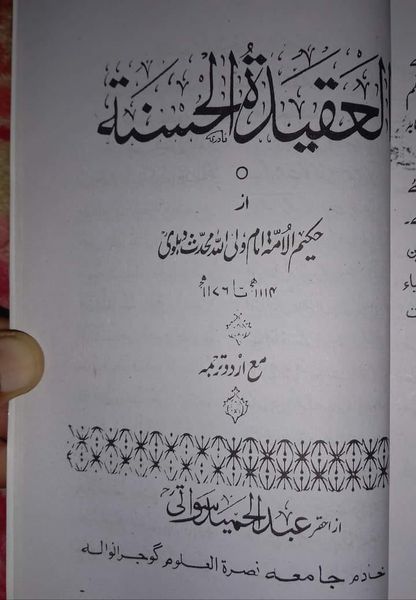 العقيدة الحسنة
از
حکیم الامۃ امام ولی اللہ محدث دہلویؒ
۱۱۱۴ھ تا ۱۱۷۶ھ
مع اردو ترجمہ
از احقر عبدالحمید سواتی
خادم جامعہ نصرۃ العلوم گوجرانوالہ